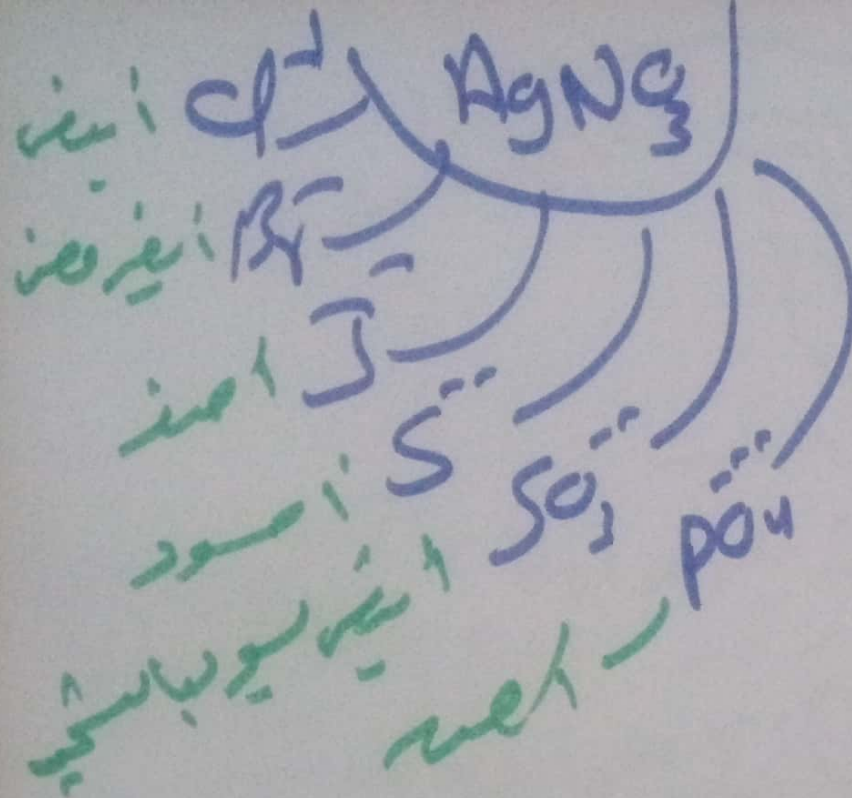 AgNO3
Cl- أبيض
Br- أبيض مصفر
I- أصفر
S-- أسود
SO3-- أبيض يسود بالتسخين
PO4--- أصفر